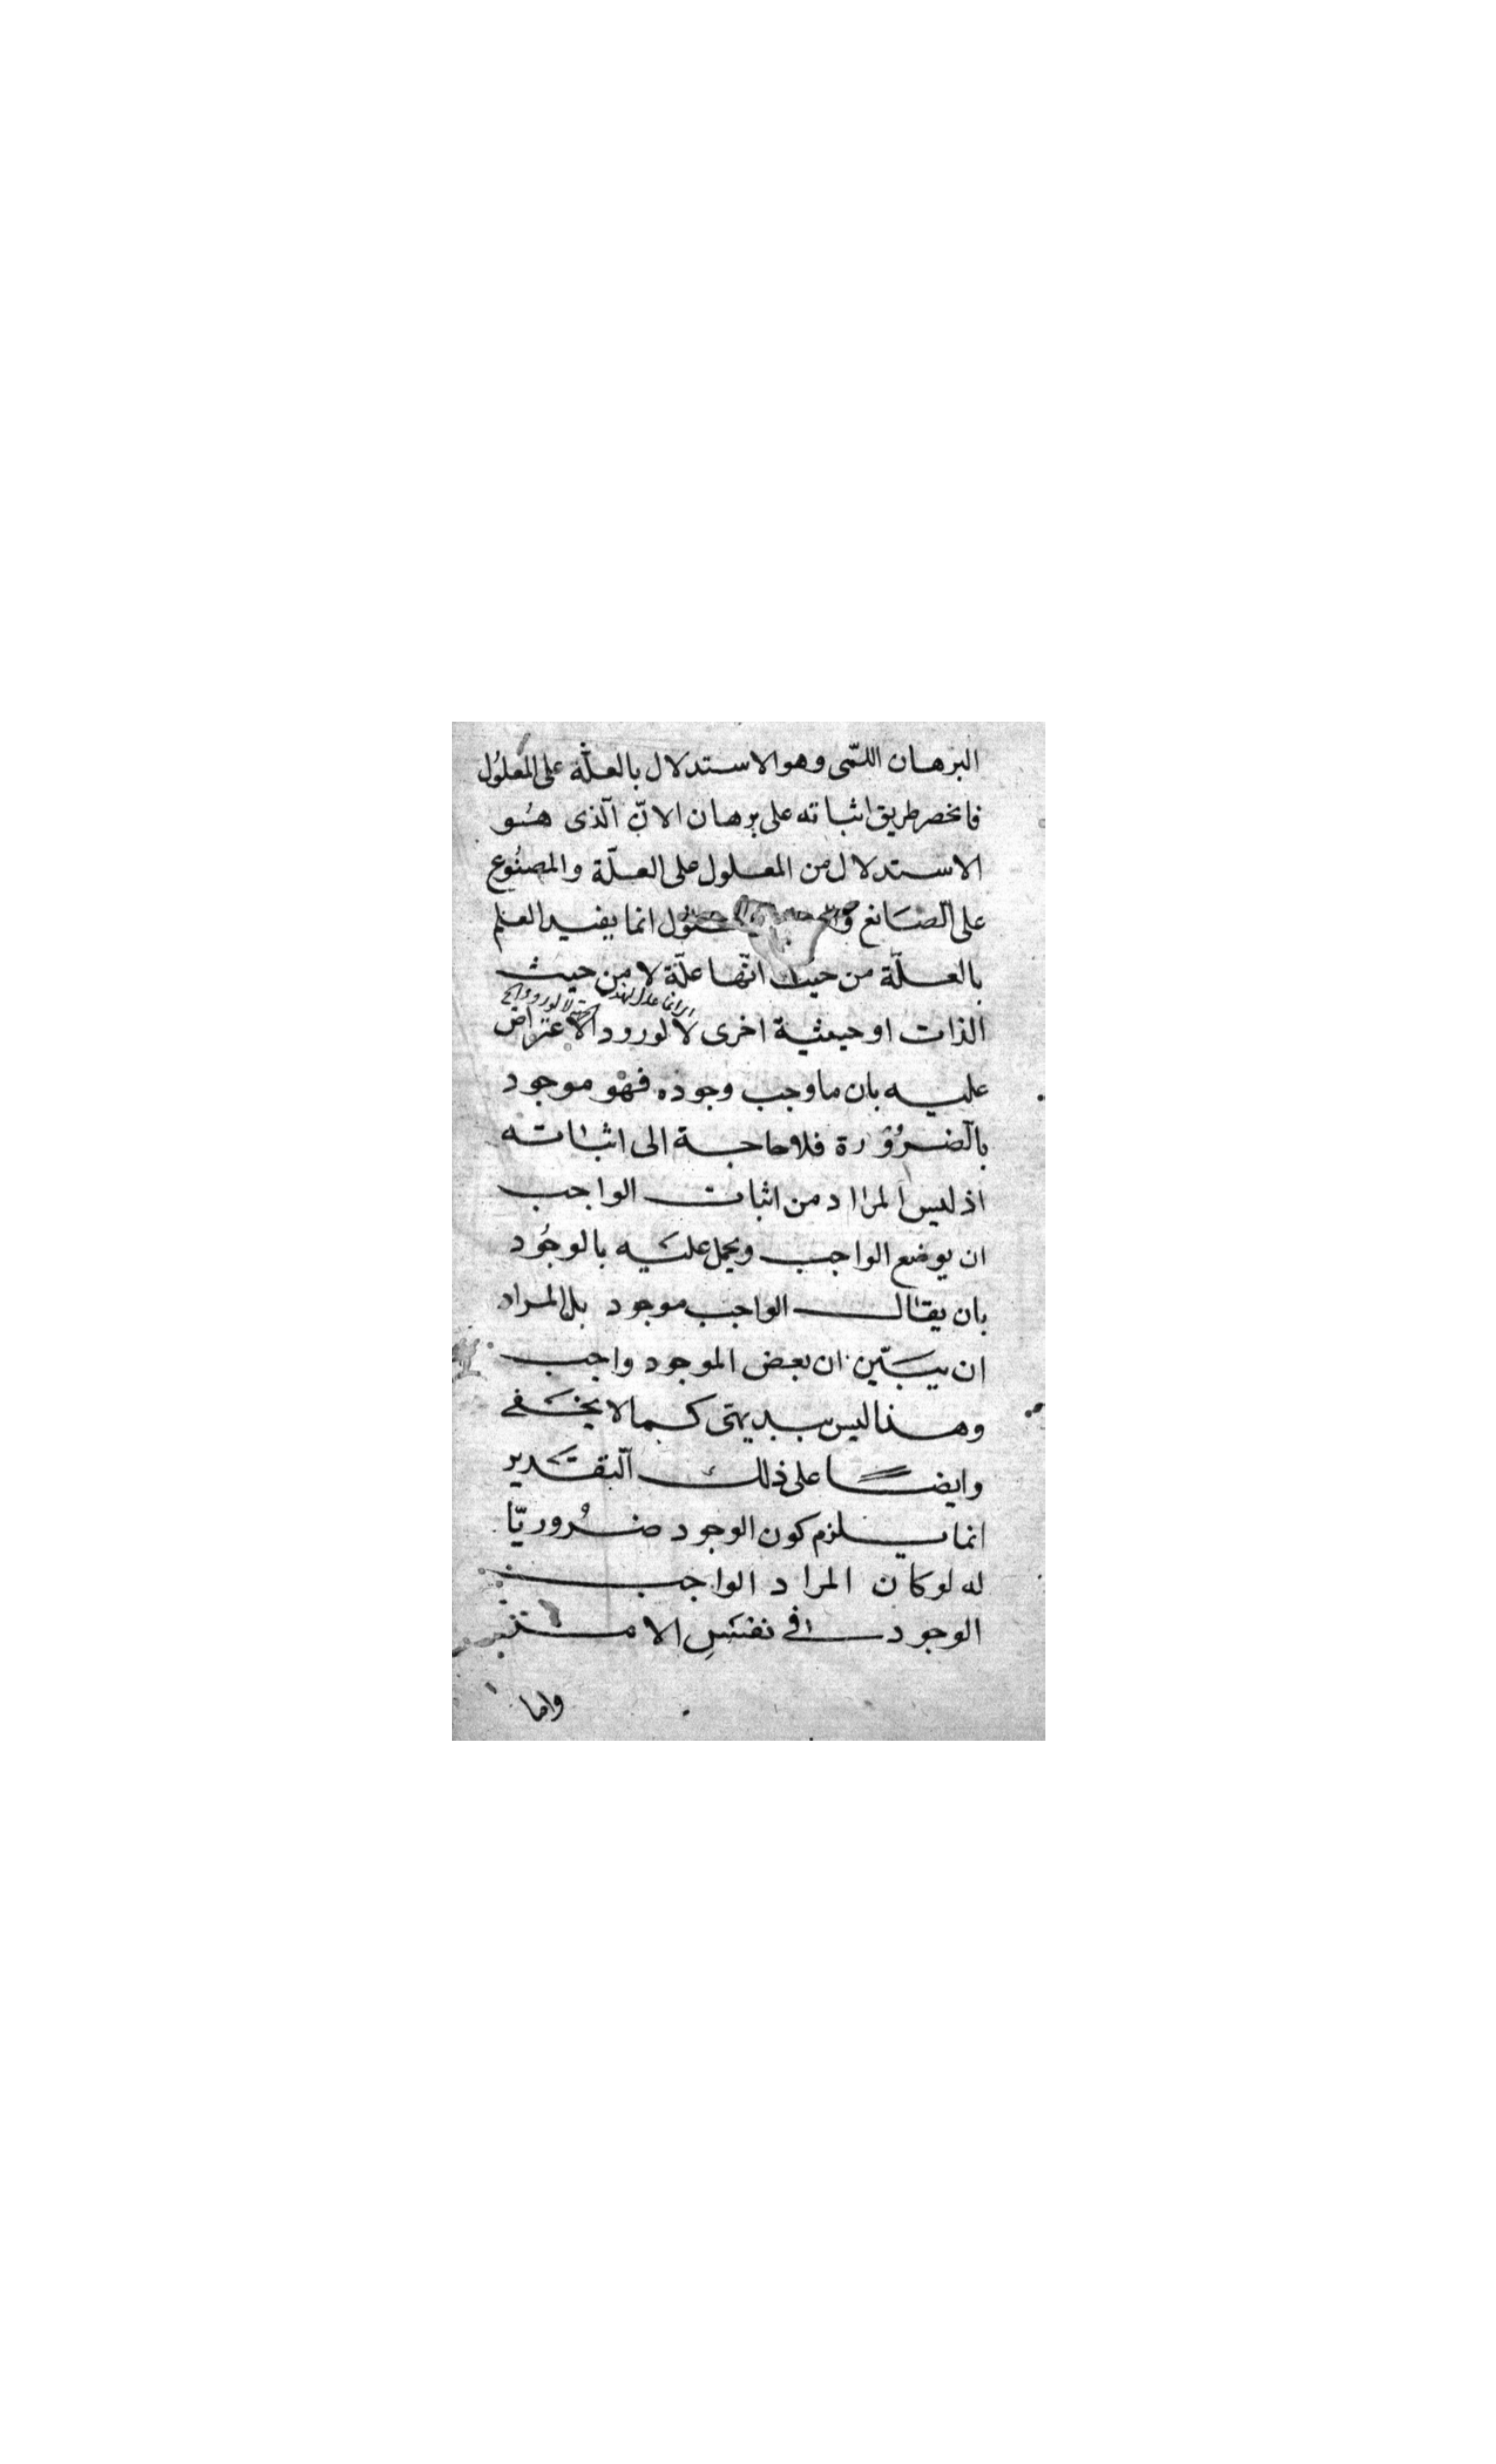 البرهان اللمّى وهو الاستدلال بالعلّة على المعلُول
فانحصر طريق اثباته على برهان الانّ الّذى هُو
الاستدلال من المعلول على العلّة والمصنُوع
على الصَانع انما يفيد العلم
بالعلّة من حيث انّها علّة لا من حيث
الذات او حيثية اخرى لا لورود الاعتراض
عليه بان ما وجب وجوده فهو موجود
بالضرُورة فلا حاجة الى اثباته
اذ ليس المراد من اثبات الواجب
ان يوضع الواجب ويحمل عليَه بالوجُود
بان يقال الواجب موجود بل المراد
ان يبَيّن ان بعض الموجود واجب
وهذا ليس ببديهى كما لا يخفَى
وايضًا على ذلك التقدَير
انما يلزم كون الوجود ضرُوريّا
له لو كان المراد الواجب
الوجود فى نفسِ الامر
واما